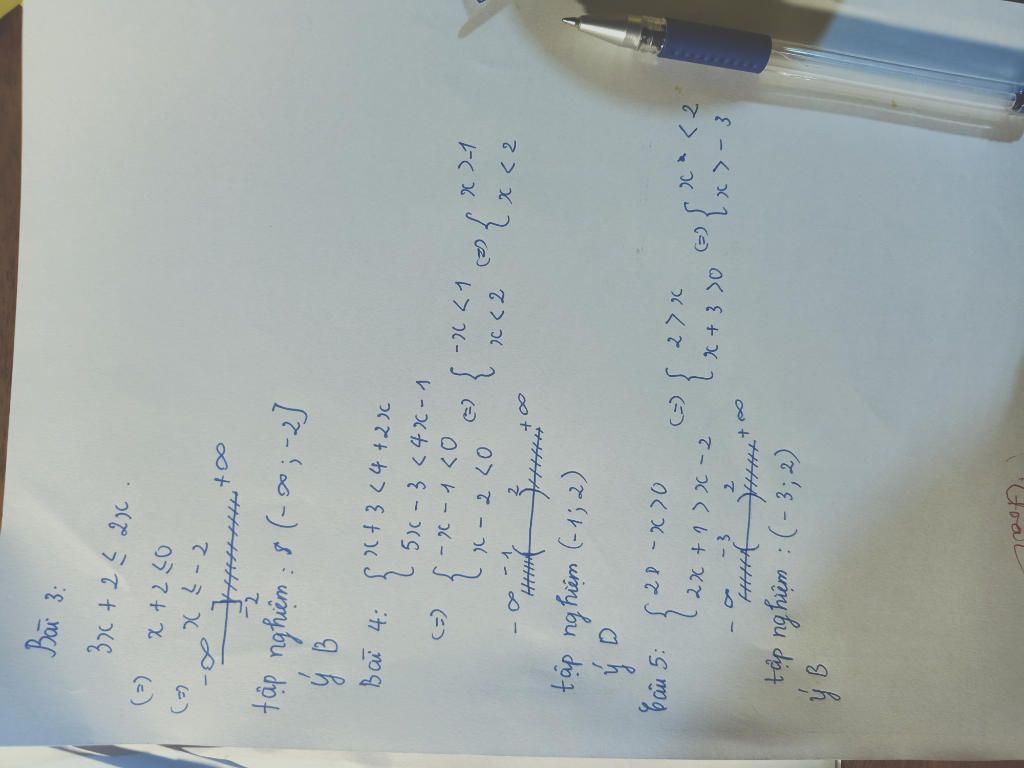 Bài 3:
3x + 2 ≤ 2x.
(=) x + 2 ≤ 0
(=) x ≤ -2
-∞ -2 +∞
tập nghiệm : (-∞ ; -2]
ý B
Bài 4: { x + 3 < 4 + 2x
{ 5x - 3 < 4x - 1
(=) { -x - 1 < 0 (=) { -x < 1 (=) { x > -1
{ x - 2 < 0 { x < 2 { x < 2
-∞ -1 2 +∞
tập nghiệm (-1; 2)
ý D
Câu 5: { 2 - x > 0 (=) { 2 > x (=) { x < 2
{ 2x + 1 > x - 2 { x + 3 > 0 { x > -3
-∞ -3 2 +∞
tập nghiệm : (-3; 2)
ý B